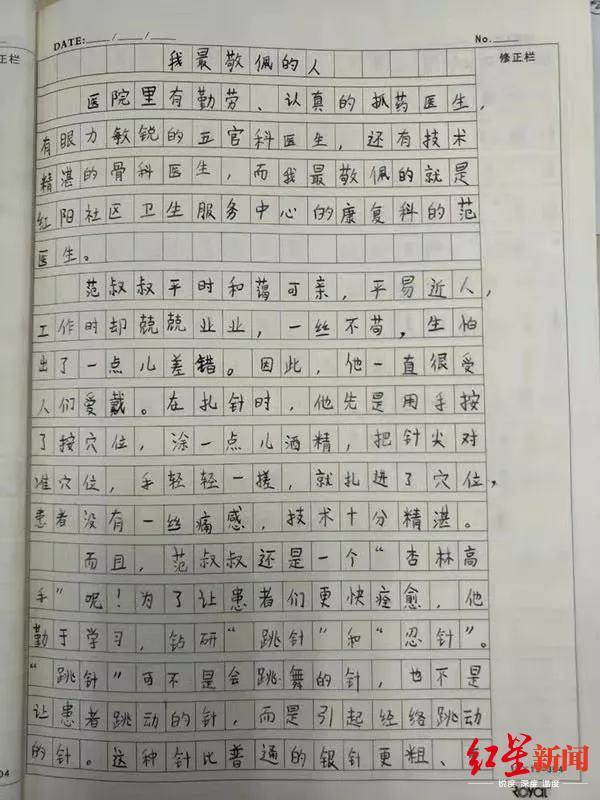 DATE: / /
No.
修正栏
我最敬佩的人
医院里有勤劳、认真的抓药医生，
有眼力敏锐的五官科医生，还有技术
精湛的骨科医生，而我最敬佩的就是
红阳社区卫生服务中心的康复科的范
医生。
范叔叔平时和蔼可亲，平易近人，
工作时却兢兢业业，一丝不苟，生怕
出了一点儿差错。因此，他一直很受
人们爱戴。在扎针时，他先是用手按
了按穴位，涂一点儿酒精，把针尖对
准穴位，手轻轻一搓，就扎进了穴位，
患者没有一丝痛感，技术十分精湛。
而且，范叔叔还是一个“杏林高
手”呢！为了让患者们更快痊愈，他
勤于学习，钻研“跳针”和“忍针”。
“跳针”可不是会跳舞的针，也不是
让患者跳动的针，而是引起经络跳动
的针。这种针比普通的银针更粗、
04
红星新闻
锐度 深度 温度
ROYAL